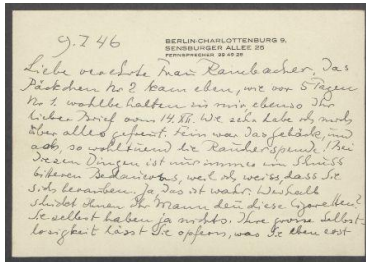 9.I 46
BERLIN-CHARLOTTENBURG 9,
SENSBURGER ALLEE 25
FERNSPRECHER
Liebe verehrte Frau Rambacher, Das
Päckchen Nr 2 kam eben, wie vor 5 Tagen
Nr 1. wohlbehalten zu mir, ebenso Ihr
lieber Brief vom 14.XII. Wie sehr habe ich mich
über alles gefreut. Fein war das Gebäck, und
ach, so wohltuend die Raucherspende! Bei
diesem Dingen ist nur immer ein Schuss
bitteren Bedauerns, weil ich weiss, dass Sie
sich berauben. Ja, das ist wahr. Weshalb
schickt Ihnen Ihr Mann denn diese Cigaretten?
Sie selbst haben ja nichts. Ihre grosse Selbst-
losigkeit lässt Sie opfern, was Sie eben erst